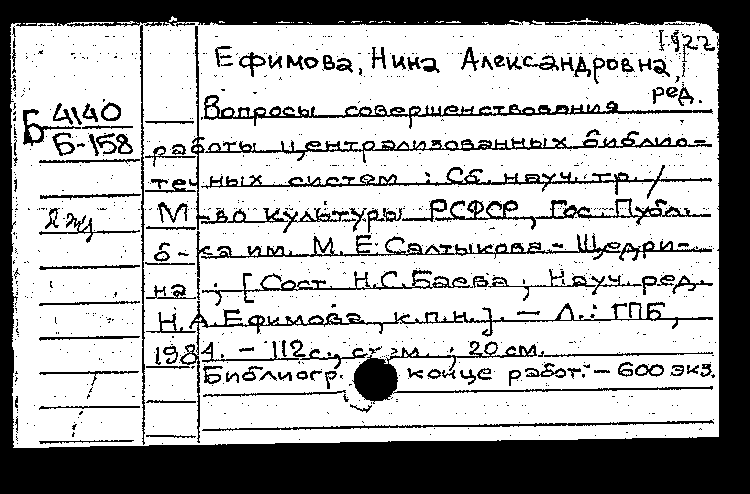 1922
Ефимова, Нина Александровна,
ред.
Б 4140
Б-158
Вопросы совершенствования
работы централизованных библио-
течных систем : Сб. науч. тр. /
М-во культуры РСФСР, Гос. Публ.
б-ка им. М. Е. Салтыкова-Щедри-
на ; [Сост. Н.С.Баева ; Науч. ред.
Н.А.Ефимова, к.п.н.]. — Л.: ГПБ,
1984. - 112 с., ; 20 см.
Библиогр. конце работ. - 600 экз.